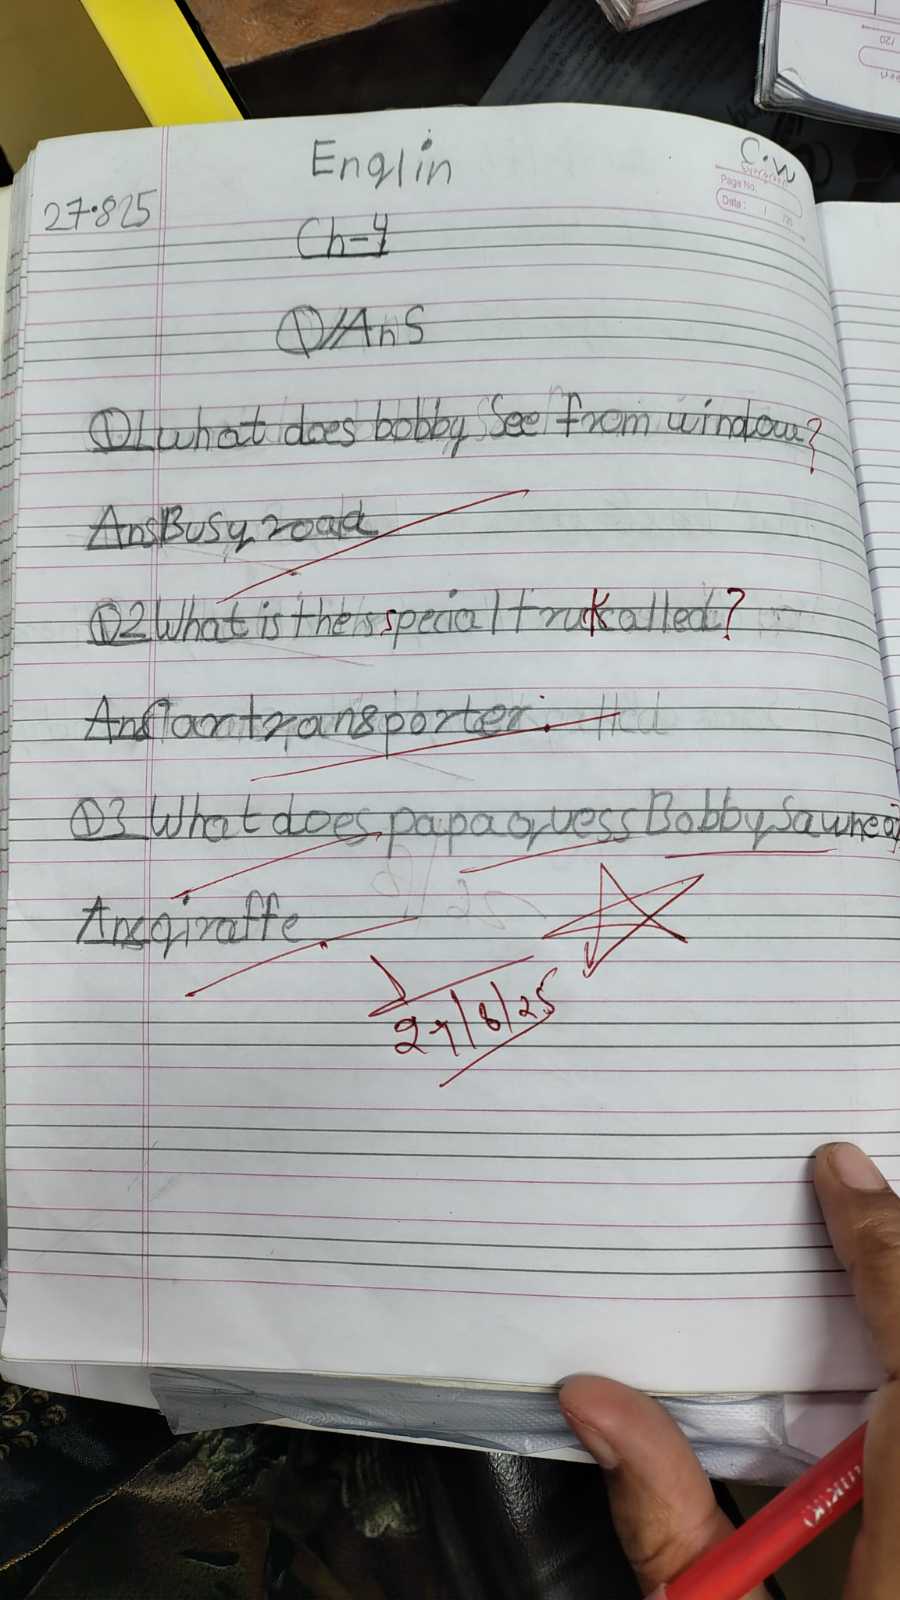 Englin
C.W
Page No.
Date:
27.825
Ch-4
Q/Ans
Q1 what does bobby See from window?
Ans Busy road
Q2 What is the sspecial trukalled?
Ans transporter.
Q3 What does papa guess Bobby Saw
Ans giraffe
27/8/25